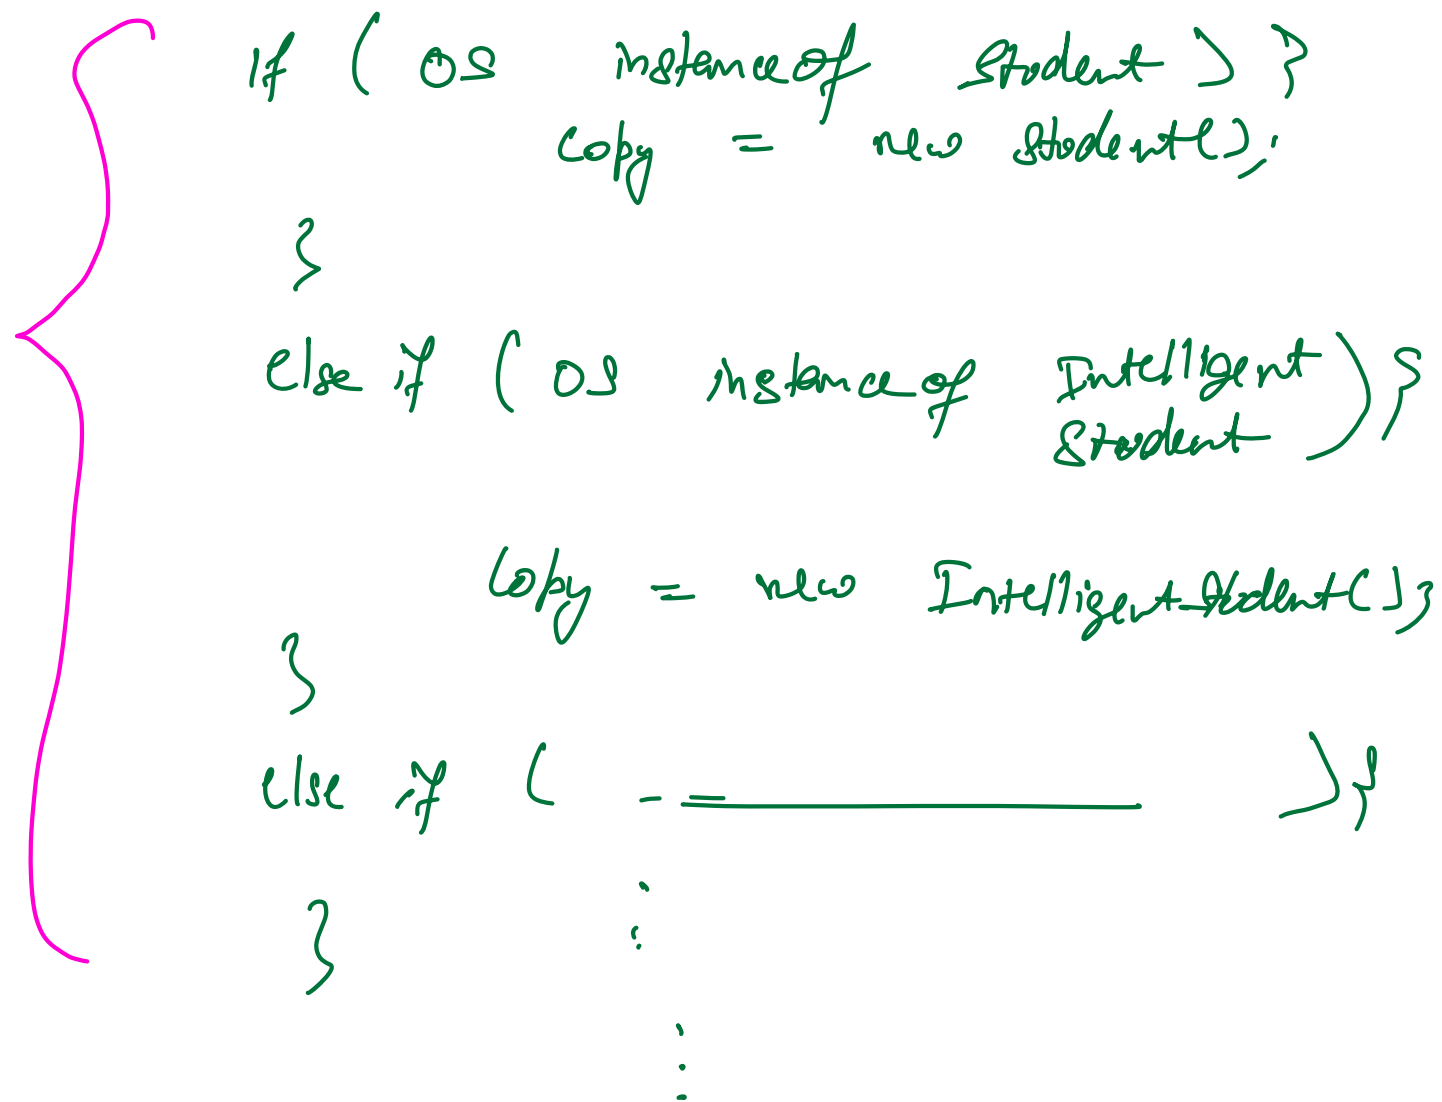 if ( OS instanceof Student ) {
copy = new Student();
}
else if ( OS instanceof Intelligent
Student ) {
copy = new IntelligentStudent();
}
else if ( ) {
}